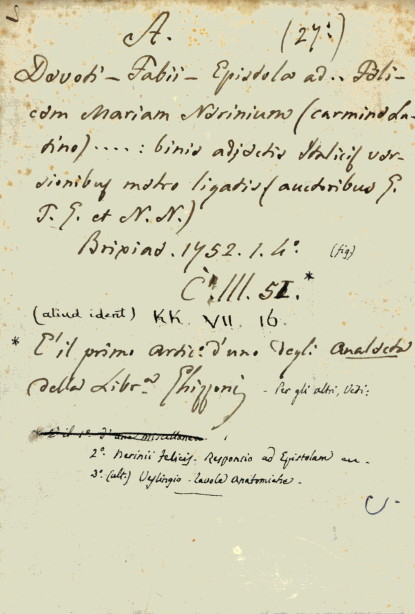 A. (27:)
Devoti – Fabii – Epistola ad .. Feli-
cem Mariam Nerinium (carmine la-
tino) .... : binis adjectis Italicis ver-
sionibus metro ligatis (auctoribus G.
T. G. et N. N.)
Brixiae. 1752. 1. 4° (fig)
C. III. 51. *
(aliud ident) KK. VII. 16.
* E' il primo artic° d'uno degli Analecta
della Libr.ª Ghiffoni - Per gli altri, Vedi:
E' il 1° d'una miscellanea
2° Nerinii Felicis - Responsio ad Epistolam
3° (ult:) Veslingio - Tavole Anatomiche.